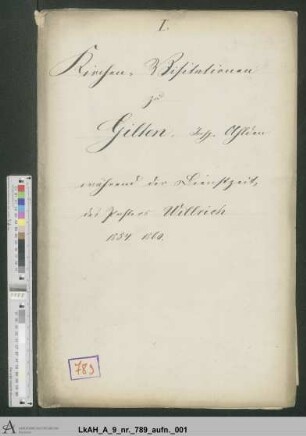 I.
Kirchen-Visitationen
zu
Gilten. Insp. Ahlden
während der Dienstzeit
des Pastors Willrich
1854
789
LkAH_A_9_nr._789_aufn._001